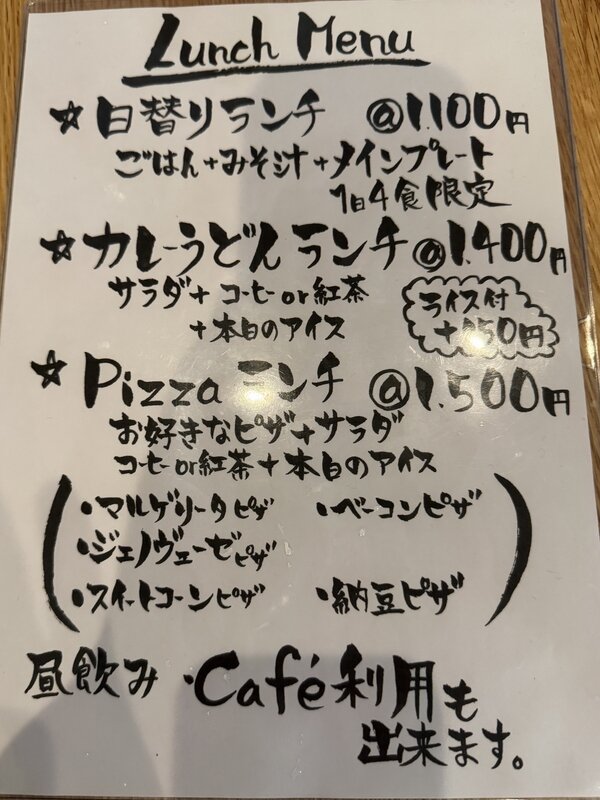 Lunch Menu
☆日替りランチ @1.100円
ごはん+みそ汁+メインプレート
1日4食限定
☆カレーうどんランチ @1.400円
サラダ+コーヒーor紅茶
+本日のアイス
ライス付
+150円
☆Pizzaランチ @1.500円
お好きなピザ+サラダ
コーヒーor紅茶+本日のアイス
(・マルゲリータピザ ・ベーコンピザ
・ジェノヴェーゼピザ
・スイートコーンピザ ・納豆ピザ)
昼飲み・Café利用も
出来ます。